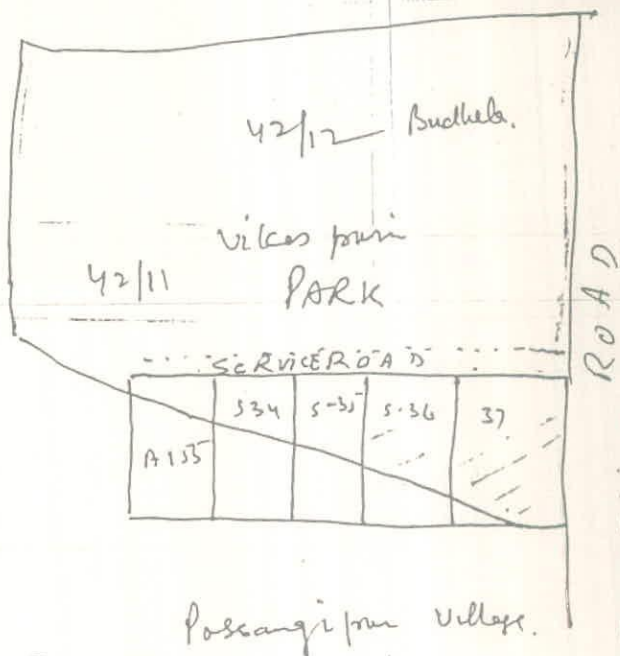 42/12 Budhela.
Vikas puri
42/11
PARK
ROAD
SERVICE ROAD
A155
S34
S-35
S-36
37
Possangipur Village.